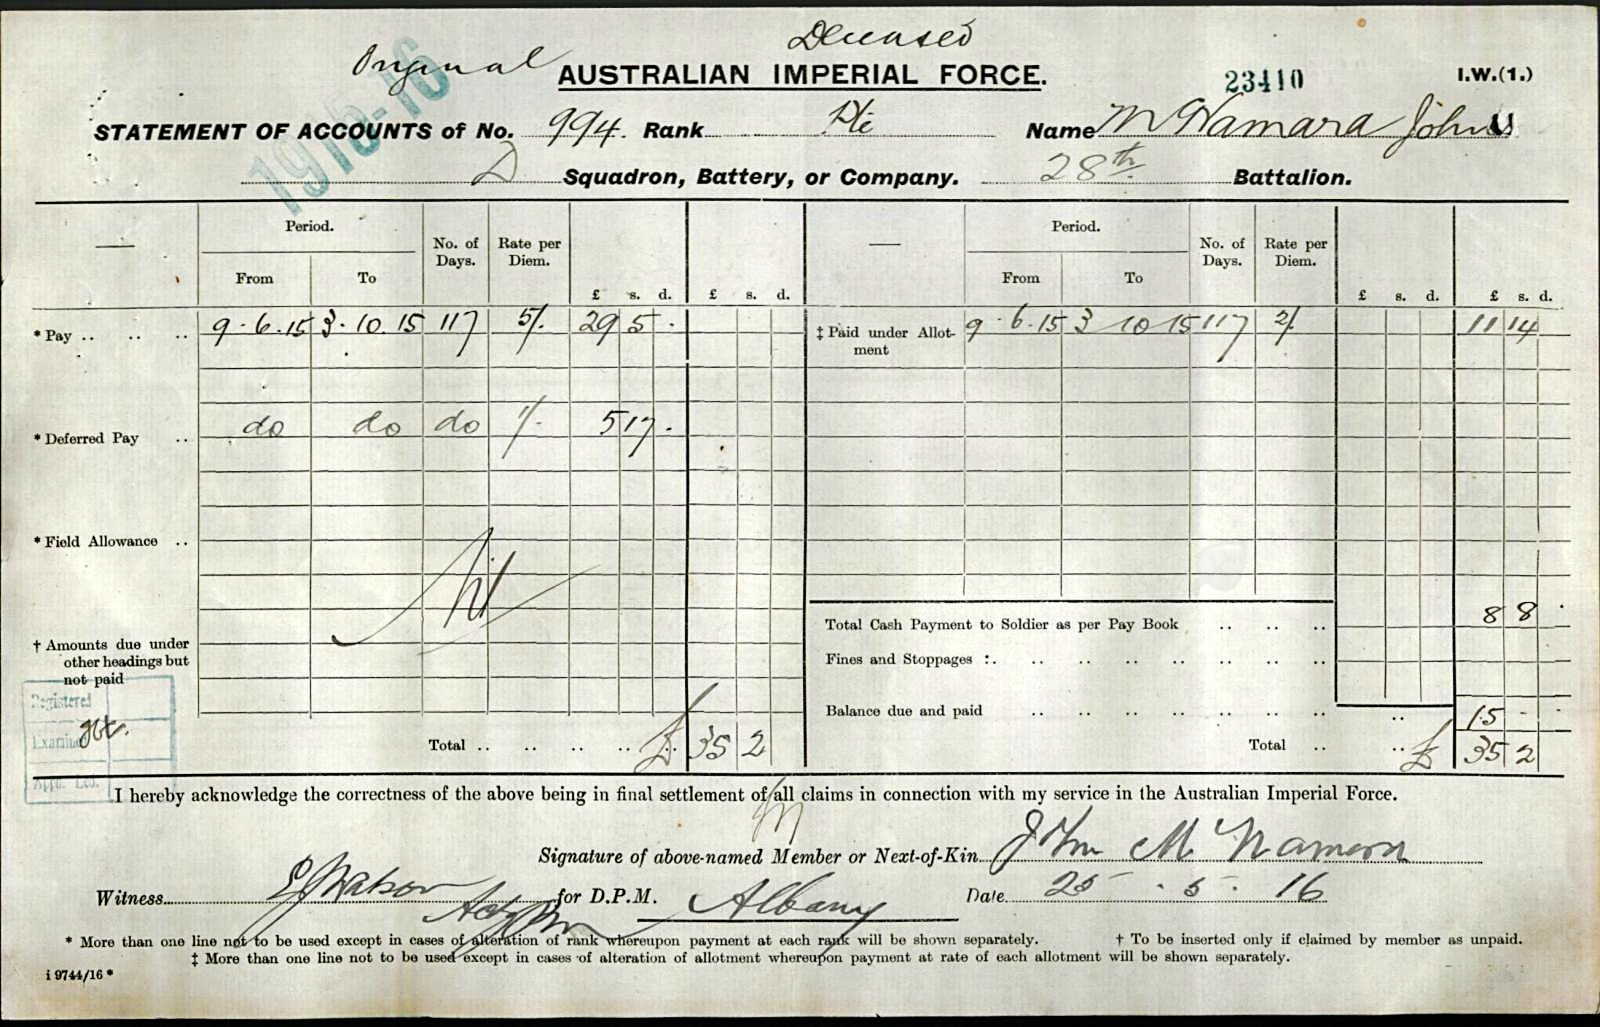 Deceased
Original
1915-16
AUSTRALIAN IMPERIAL FORCE.
23410
I.W.(1.)
STATEMENT OF ACCOUNTS of No. 994. Rank Pte Name McNamara John
D Squadron, Battery, or Company. 28th Battalion.
Period. No. of Days. Rate per Diem. Period. No. of Days. Rate per Diem.
From To £ s. d. £ s. d. From To £ s. d. £ s. d.
* Pay .. .. .. 9.6.15 3.10.15 117 5/. 29 5 . ‡ Paid under Allotment 9.6.15 3 10 15 117 2/. 11 14
* Deferred Pay .. do do do 1/. 5 17 .
* Field Allowance ..
Nil
† Amounts due under other headings but not paid
Total Cash Payment to Soldier as per Pay Book .. .. .. 8 8 .
Fines and Stoppages :. .. .. .. .. .. ..
Balance due and paid .. .. .. .. .. .. .. .. 15 - -
Total .. .. .. .. £ 35 2 Total .. .. £ 35 2
Registered
Examined
Appr. Led.
I hereby acknowledge the correctness of the above being in final settlement of all claims in connection with my service in the Australian Imperial Force.
Signature of above-named Member or Next-of-Kin John McNamara
Witness E J Watson for D.P.M. Albany Date 25 . 5 . 16
* More than one line not to be used except in cases of alteration of rank whereupon payment at each rank will be shown separately. † To be inserted only if claimed by member as unpaid.
‡ More than one line not to be used except in cases of alteration of allotment whereupon payment at rate of each allotment will be shown separately.
i 9744/16 *